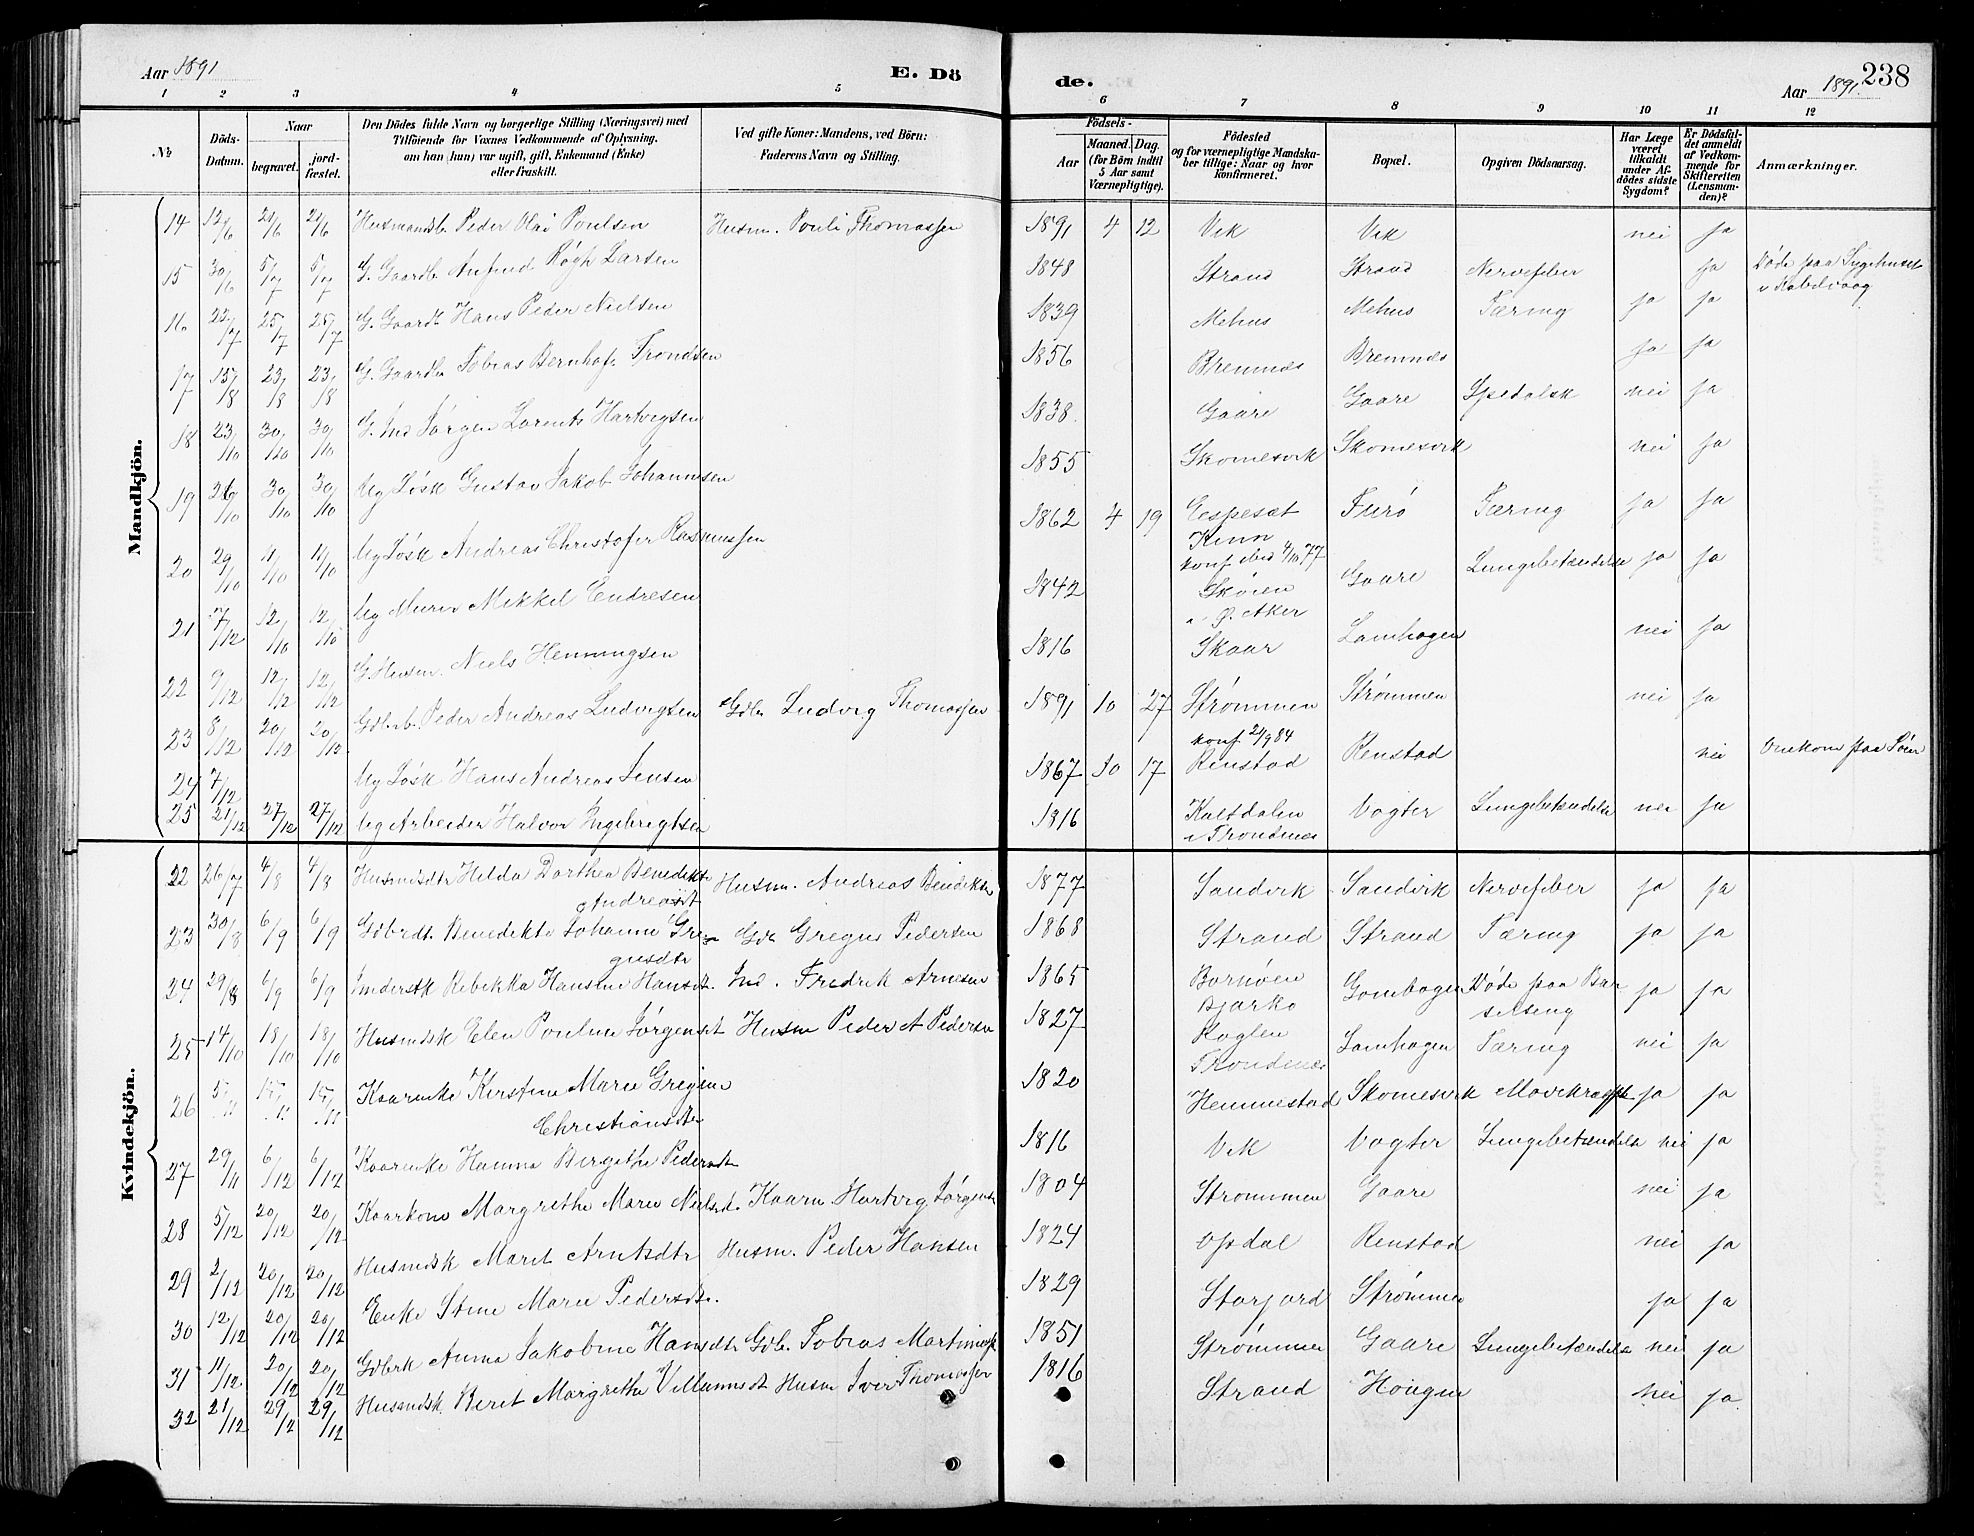 Aar 1891
E. Dö
de.
Aar 1891.
238
1 2 3 4 5 6 7 8 9 10 11 12
№
Döds-Datum.
Naar
begravet.
jordfæstet.
Den Dödes fulde Navn og borgerlige Stilling (Næringsvei) med
Tilföiende for Voxnes Vedkommende af Oplysning,
om han (hun) var ugift, gift, Enkemand (Enke)
eller fraskilt.
Ved gifte Koner: Mandens, ved Börn:
Faderens Navn og Stilling.
Födsels-
Aar
Maaned. Dag.
(for Börn indtil
5 Aar samt
Værnepligtige).
Födested
og for værnepligtige Mandska-
ber tillige: Naar og hvor
konfirmeret.
Bopæl.
Opgiven Dödsaarsag.
Har Læge
været
tilkaldt
under Af-
dödes sidste
Sygdom?
Er Dödsfal-
det anmeldt
af Vedkom-
mende for
Skifteretten
(Lensman-
den)?
Anmærkninger.
Mandkjön.
14 12/6 21/6 21/6 Husmandsb Peder Olai Poulsen Husm. Pouli Thomassen 1891 4 12 Vik Vik nei ja
15 30/6 5/7 5/7 G. Gaardb Anfind Røgh Larsen 1848 Strand Strand Nervefeber ja Døde paa Sygehuset
i Kabelvaag
16 22/7 25/7 25/7 G. Gaardb Hans Peder Nielsen 1839 Mehus Mehus Tæring ja ja
17 15/8 23/8 23/8 G. Gaardbr Tobias Bernhof Trondsen 1856 Bremnes Bremnæs ja ja
18 23/10 30/10 30/10 G. Ind Jørgen Lorents Hartvigsen 1838 Gaare Gaare Spedalsk nei ja
19 26/10 30/10 30/10 Ug Løsk Gustav Jakob Johannsen 1855 Skomesvik Skomesvik nei ja
20 29/10 11/10 11/10 Ug Løsk Andreas Christofer Rasmussen 1862 4 19 Eespesæt Furø Tæring ja ja
Kinn
konf ibid 4/10 77
21 7/12 12/10 12/10 Ug Murer Mikkel Endresen 1842 Skøien Gaare Lungebetændelse ja ja
i Ø. Aker
22 9/12 12/12 12/12 G. Husm. Niels Henningsen 1816 Skaar Lamhagen nei ja
23 8/12 20/12 20/12 Gdbrb. Peder Andreas Ludvigsen Gdbr Ludvig Thomassen 1891 10 27 Strømmen Strømmen nei ja
konf 21/9 84
24 7/12 Ug Løsk Hans Andreas Jensen 1867 10 17 Renstad Renstad nei Omkom paa Søen
25 21/12 27/12 27/12 Ug Arbeider Halvor Ingebrigtsen 1816 Kaltdalen Vogter Lungebetændelse nei ja
i Trondnes
Kvindekjön.
22 26/7 4/8 4/8 Husmdsdtr Hilda Dorthea Benedikte Husm. Andreas Benediktsen 1877 Sandvik Sandvik Nervefeber ja ja
Andreasdt
23 30/8 6/9 6/9 Gdbrdt Benedikte Johanne Gre- Gdb Gregus Pedersen 1868 Strand Strand Tæring ja ja
gusdtr
24 29/8 6/9 6/9 Inderstk Rebekka Hansine Hansdt. Ind. Fredrik Arnesen 1865 Bornøen Gombogen Døde paa Bar ja ja
Bjarkø selseng
25 14/10 18/10 18/10 Husmdsk Elen Pouline Jørgensdt Husm Peder A Pedersen 1827 Roglen Lamhagen Tæring nei ja
Trondenæs
26 5/11 15/11 15/11 Kaarenke Kirstine Marie Gregine 1820 Hemmestad Skomesvik Mavekræft ja ja
Christiansdtr
27 29/11 6/12 6/12 Kaarenke Hanna Birgithe Pedersdt 1816 Vik Vogter Lungebetændelse nei ja
28 5/12 20/12 20/12 Kaarkone Margrethe Marie Nielsdt. Kaarm Hartvig Jørgens 1804 Strømmen Gaare nei ja
29 2/12 20/12 20/12 Husmdsk Marit Arntsdtr Husm. Peder Hansen 1824 Opdal Renstad nei ja
30 12/12 20/12 20/12 Enke Stine Marie Pedersdt. 1829 Storjord Strømmen ja ja
31 11/12 20/12 20/12 Gdbrk Anna Jakobine Hansdtr Gdb. Tobias Martin 1851 Strømmen Gaare Lungebetændelse nei ja
32 21/12 29/12 29/12 Husmdsk. Berit Margrethe Villumsdt Husm Iver Thomassen 1816 Strand Hougen nei ja